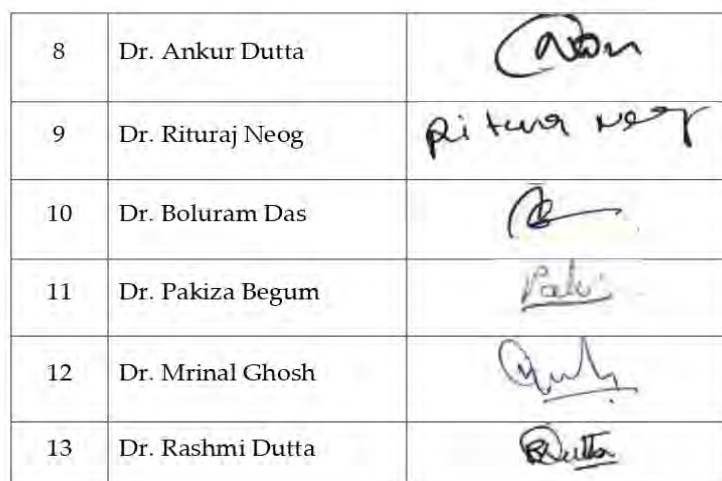 8 Dr. Ankur Dutta
9 Dr. Rituraj Neog Rituraj Neog
10 Dr. Boluram Das
11 Dr. Pakiza Begum
12 Dr. Mrinal Ghosh
13 Dr. Rashmi Dutta RDutta